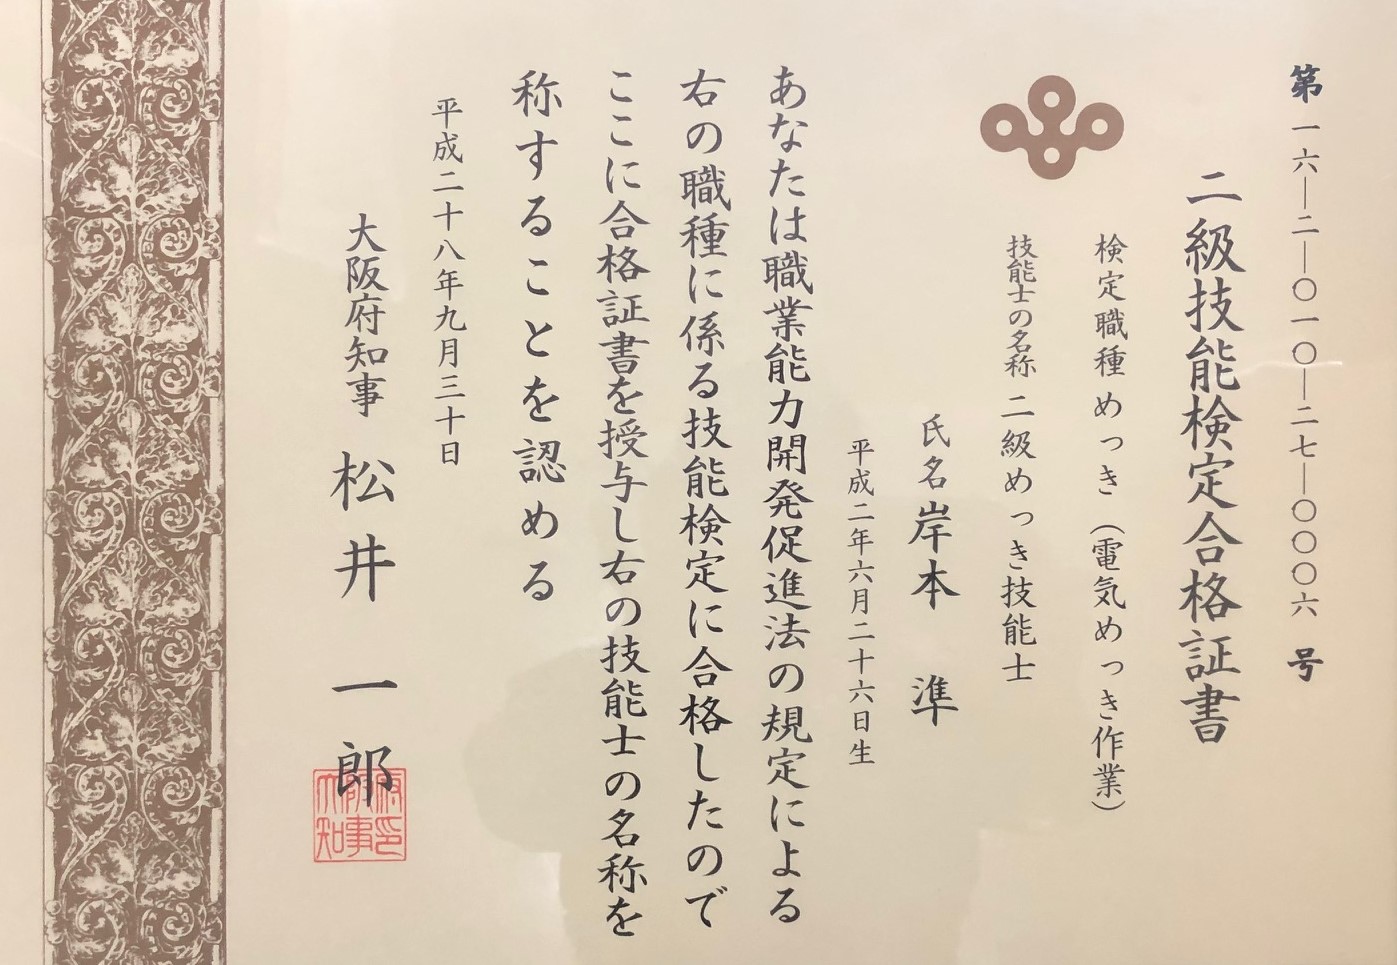 第一六―二―〇一〇―二七―〇〇〇六号
二級技能検定合格証書
検定職種 めっき（電気めっき作業）
技能士の名称 二級めっき技能士
氏名 岸本 準
平成二年六月二十六日生
あなたは職業能力開発促進法の規定による
右の職種に係る技能検定に合格したので
ここに合格証書を授与し右の技能士の名称を
称することを認める
平成二十八年九月三十日
大阪府知事 松井 一郎